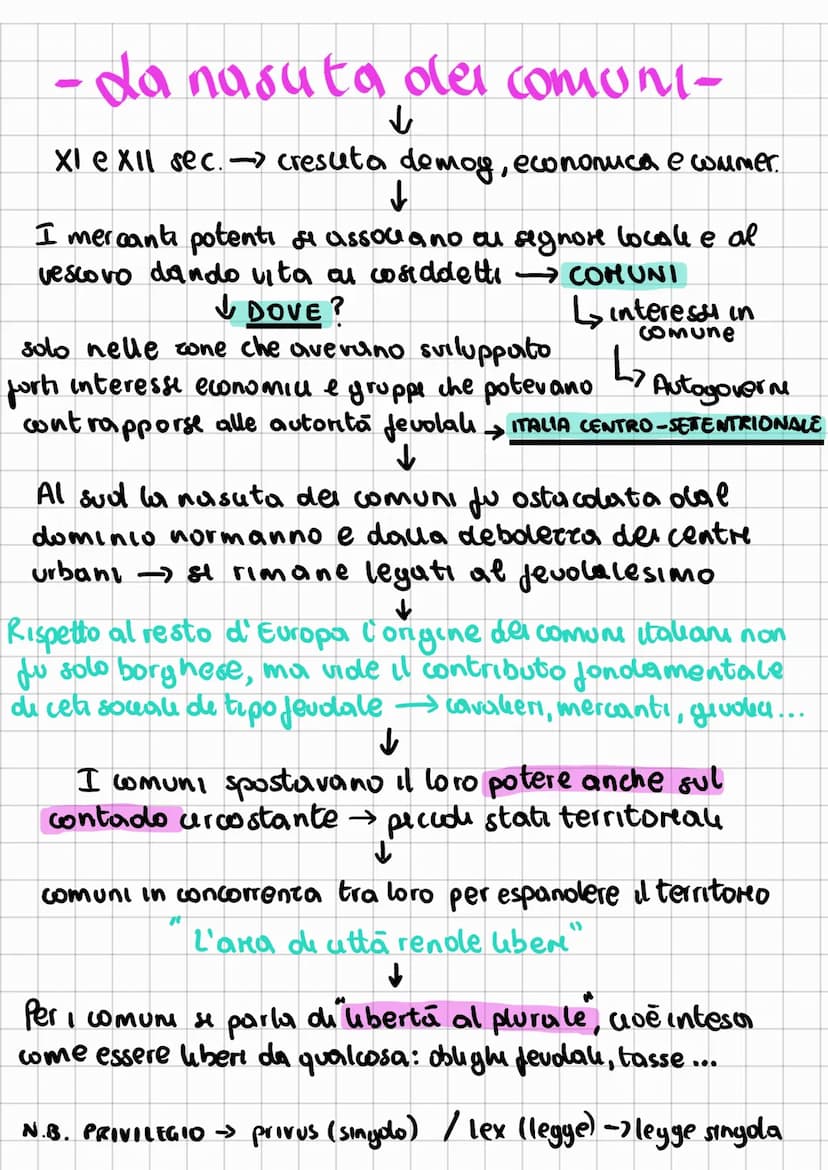 - La nascita dei comuni -
↓
XI e XII sec. → crescita demog, economica e commer.
↓
I mercanti potenti si associano ai signori locali e al
vescovo dando vita ai cosiddetti → COMUNI
↓ DOVE?
↳ interessi in
comune
solo nelle zone che avevano sviluppato
forti interessi economici e gruppi che potevano
↳ Autogoverni
contrapporsi alle autorità feudali → ITALIA CENTRO-SETENTRIONALE
↓
Al sud la nascita dei comuni fu ostacolata dal
dominio normanno e dalla debolezza dei centri
urbani → si rimane legati al feudalesimo
↓
Rispetto al resto d'Europa l'origine dei comuni italiani non
fu solo borghese, ma vide il contributo fondamentale
di ceti sociali di tipo feudale → cavalieri, mercanti, giudici...
↓
I comuni spostavano il loro potere anche sul
contado circostante → piccoli stati territoriali
↓
comuni in concorrenza tra loro per espandere il territorio
"L'aria di città rende liberi"
↓
Per i comuni si parla di "libertà al plurale", cioè intesa
come essere liberi da qualcosa: oblighi feudali, tasse...
N.B. PRIVILEGIO → privus (singolo) / lex (legge) → legge singola